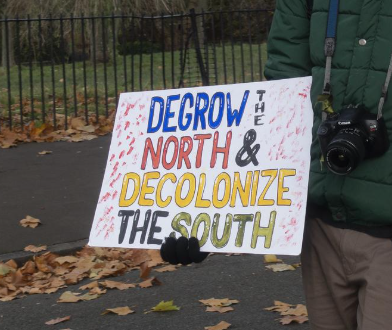 DEGROW THE
NORTH &
DECOLONIZE
THE SOUTH
Canon